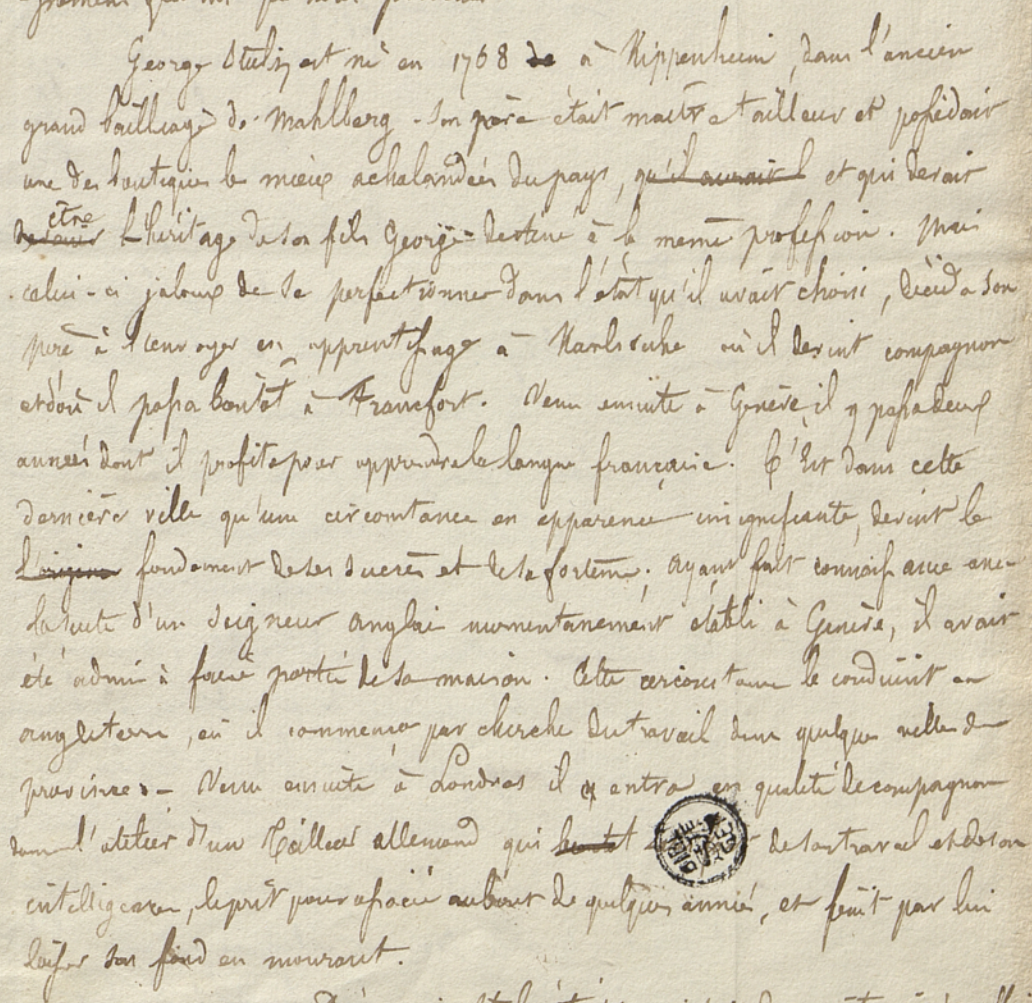 George Stulz, est né en 1768 de à Kippenheim, dans l'ancien
grand bailliage de Mahlberg. Son père était maître tailleur et possédait
une des boutiques le mieux achalandées du pays, qu'il aurait l et qui devait
être l'héritage de son fils George destiné à la même profession. Mais
celui-ci jaloux de se perfectionner dans l'état qu'il avait choisi, décida son
père à l'envoyer en apprentissage à Karlsruhe où il devint compagnon
et d'où il passa bientôt à Francfort. Venu ensuite à Genève, il y passa deux
années dont il profita pour apprendre la langue française. C'est dans cette
dernière ville qu'une circonstance en apparence insignifiante, devint le
l'origine fondement de ses succès et de sa fortune. Ayant fait connaissance avec
la suite d'un seigneur anglais momentanément établi à Genève, il avait
été admis à faire partie de sa maison. Cette circonstance le conduisit en
angleterre, où il commença par chercher du travail dans quelque ville de
province. - Venu ensuite à Londres il y entra en qualité de compagnon
dans l'atelier d'un Tailleur allemand qui de son travail et de son
intelligence, le prit pour associé au bout de quelques années, et finit par lui
laisser son fond en mourant.